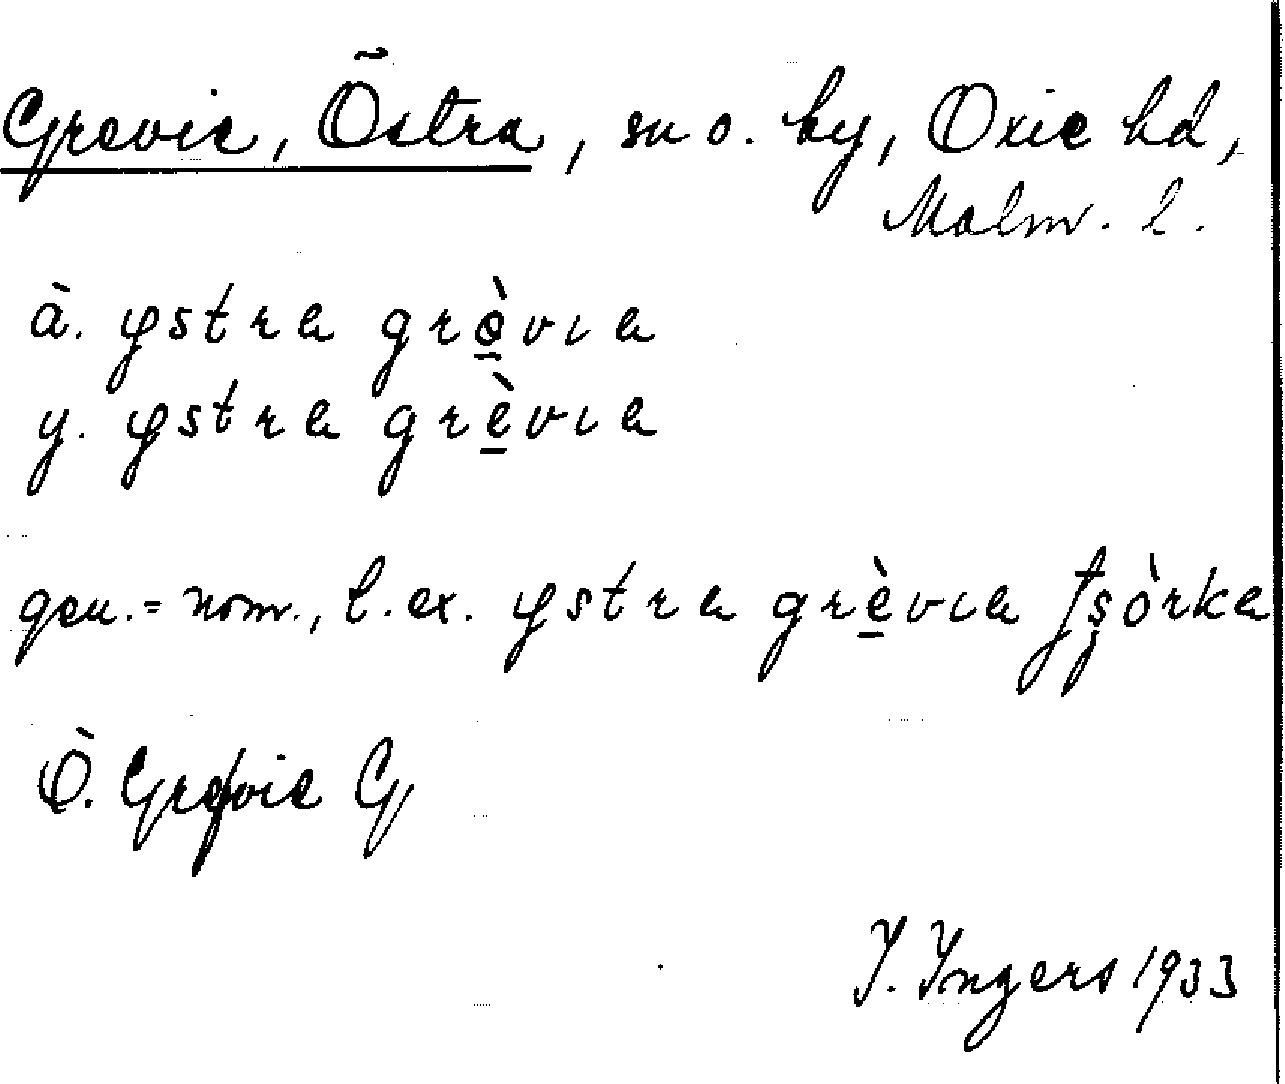 Grevie, Östra, sn o. by, Oxie hd,
Malm. l.
ä. ystra grèvıa
y. ystra grèvıa
gen. = nom., t. ex. ystra grèvıa
Ö. Grefvie G
I. Ingers 1933